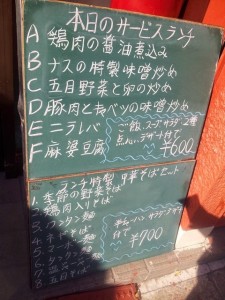 本日のサービスランチ
A 鶏肉の醤油煮込み
B ナスの特製味噌炒め
C 五目野菜と卵の炒め
D 豚肉とキャベツの味噌炒め
E ニラレバ
F 麻婆豆腐
ご飯、スープ サラダ 2種
点心、デザート付で
¥600
ランチ特製 中華そばセット
1. 季節の野菜そば
2. 鶏肉入りそば
3. ワンタン麺
4. ネギ
5.
6. タンタン麺
7.
8. 五目そば
サラダ
付で
¥700